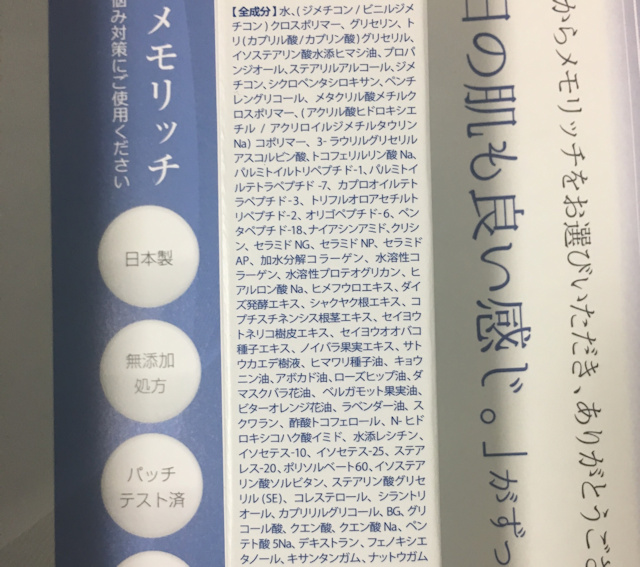 からメモリッチをお選びいただき、ありがとうござ
日の肌も良い感じ。」がずっ
【全成分】水、(ジメチコン / ビニルジメ
チコン) クロスポリマー、グリセリン、ト
リ(カプリル酸/カプリン酸)グリセリル、
イソステアリン酸水添ヒマシ油、プロパ
ンジオール、ステアリルアルコール、ジメ
チコン、シクロペンタシロキサン、ペンチ
レングリコール、 メタクリル酸メチルク
ロスポリマー、(アクリル酸ヒドロキシエ
チル / アクリロイルジメチルタウリン
Na) コポリマー、 3- ラウリルグリセリル
アスコルビン酸、トコフェリルリン酸 Na、
パルミトイルトリペプチド-1、パルミトイ
ルテトラペプチド -7、カプロオイルテト
ラペプチド-3、トリフルオロアセチルト
リペプチド-2、オリゴペプチド-6、ペン
タペプチド-18、ナイアシンアミド、クリシ
ン、セラミド NG、セラミド NP、セラミド
AP、 加水分解コラーゲン、 水溶性コ
ラーゲン、水溶性プロテオグリカン、ヒ
アルロン酸 Na、ヒメフウロエキス、ダイ
ズ発酵エキス、シャクヤク根エキス、コ
プチスチネンシス根茎エキス、セイヨウ
トネリコ樹皮エキス、 セイヨウオオバコ
種子エキス、ノイバラ果実エキス、サト
ウカエデ樹液、ヒマワリ種子油、 キョウ
ニン油、アボカド油、ローズヒップ油、ダ
マスクバラ花油、 ベルガモット果実油、
ビターオレンジ花油、ラベンダー油、ス
クワラン、 酢酸トコフェロール、 N- ヒド
ロキシコハク酸イミド、 水添レシチン、
イソセテス-10、イソセテス-25、ステア
レス-20、ポリソルベート60、イソステア
リン酸ソルビタン、ステアリン酸グリセ
リル(SE)、コレステロール、シラントリ
オール、カプリリルグリコール、BG、グリ
コール酸、クエン酸、クエン酸 Na、ペン
テト酸 5Na、デキストラン、フェノキシエ
タノール、キサンタンガム、ナットウガム
メモリッチ
悩み対策にご使用ください
日本製
無添加
処方
パッチ
テスト済